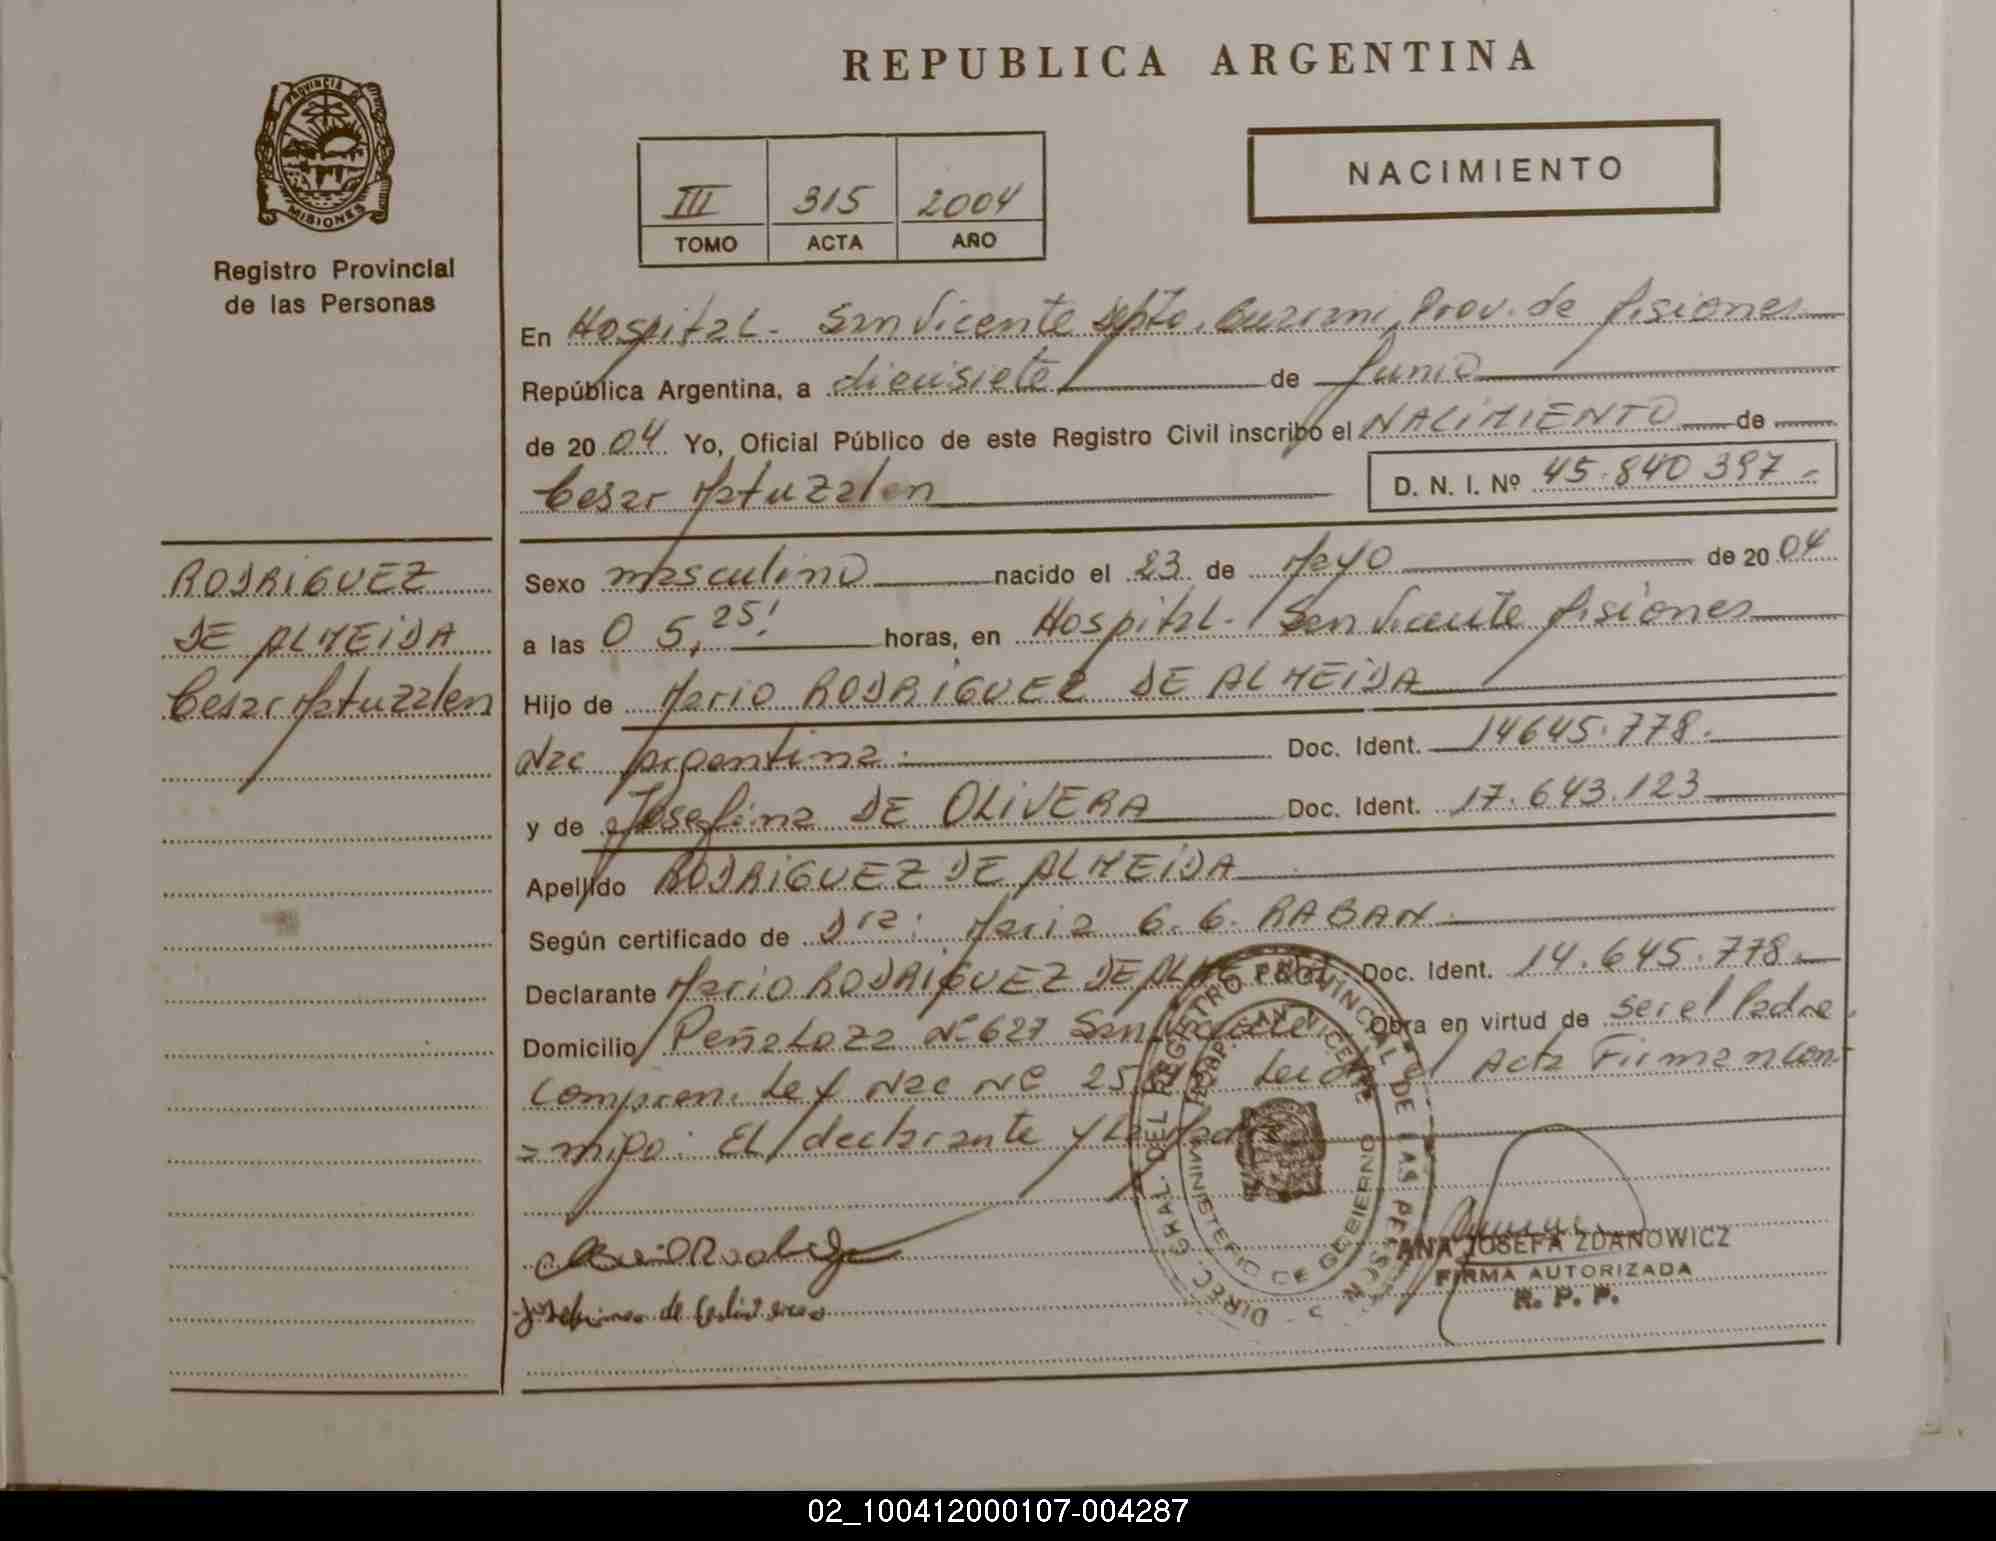 REPUBLICA ARGENTINA
PROVINCIA DE
MISIONES
Registro Provincial
de las Personas
III 315 2004
TOMO ACTA AÑO
NACIMIENTO
En Hospital. San Vicente Depto. Prov. de Misiones
República Argentina, a diecisiete de Junio
de 2004 Yo, Oficial Público de este Registro Civil inscribo el NACIMIENTO de
Cesar Matuzalen D. N. I. Nº 45.840 397.-
RODRIGUEZ
DE ALMEIDA
Cesar Matuzalen
Sexo masculino nacido el 23 de Mayo de 2004
a las 05,25! horas, en Hospital. San Vicente Misiones
Hijo de Mario RODRIGUEZ DE ALMEIDA
Nac Argentina. Doc. Ident. 14645.778.
y de Josefina DE OLIVERA Doc. Ident. 17.643.123
Apellido RODRIGUEZ DE ALMEIDA
Según certificado de Dra: Maria G. G. RABAN.
Declarante Mario RODRIGUEZ DE Doc. Ident. 14.645.778.
Domicilio Peñaloza Nº 627 San Obra en virtud de ser el Padre.
Compren. Ley Nac Nº el Acta Firman con-
=migo: El declarante y La
DIREC. GRAL. DEL REGISTRO PROVINCIAL DE LAS PERSONAS
HOSP. SAN VICENTE
MINISTERIO DE GOBIERNO
ANA JOSEFA ZDANOWICZ
FIRMA AUTORIZADA
R. P. P.
02_100412000107-004287